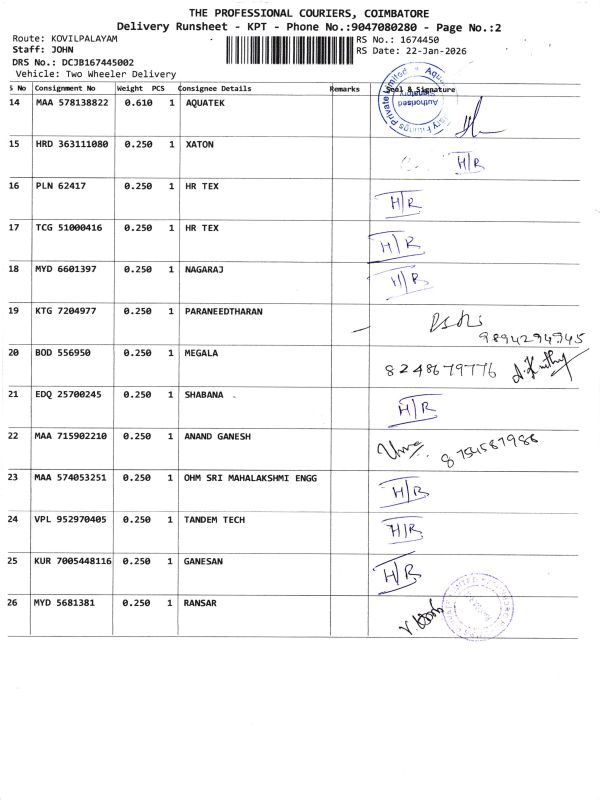 THE PROFESSIONAL COURIERS, COIMBATORE
Delivery Runsheet - KPT - Phone No.:9047080280 - Page No.:2
Route: KOVILPALAYAM RS No.: 1674450
Staff: JOHN RS Date: 22-Jan-2026
DRS No.: DCJB167445002
Vehicle: Two Wheeler Delivery
S No Consignment No Weight PCS Consignee Details Remarks Seal & Signature
14 MAA 578138822 0.610 1 AQUATEK
15 HRD 363111080 0.250 1 XATON H/R
16 PLN 62417 0.250 1 HR TEX H/R
17 TCG 51000416 0.250 1 HR TEX H/R
18 MYD 6601397 0.250 1 NAGARAJ H/R
19 KTG 7204977 0.250 1 PARANEEDTHARAN
9894294945
20 BOD 556950 0.250 1 MEGALA 8248679776
21 EDQ 25700245 0.250 1 SHABANA H/R
22 MAA 715902210 0.250 1 ANAND GANESH Uma 8754587988
23 MAA 574053251 0.250 1 OHM SRI MAHALAKSHMI ENGG H/R
24 VPL 952970405 0.250 1 TANDEM TECH H/R
25 KUR 7005448116 0.250 1 GANESAN H/R
26 MYD 5681381 0.250 1 RANSAR